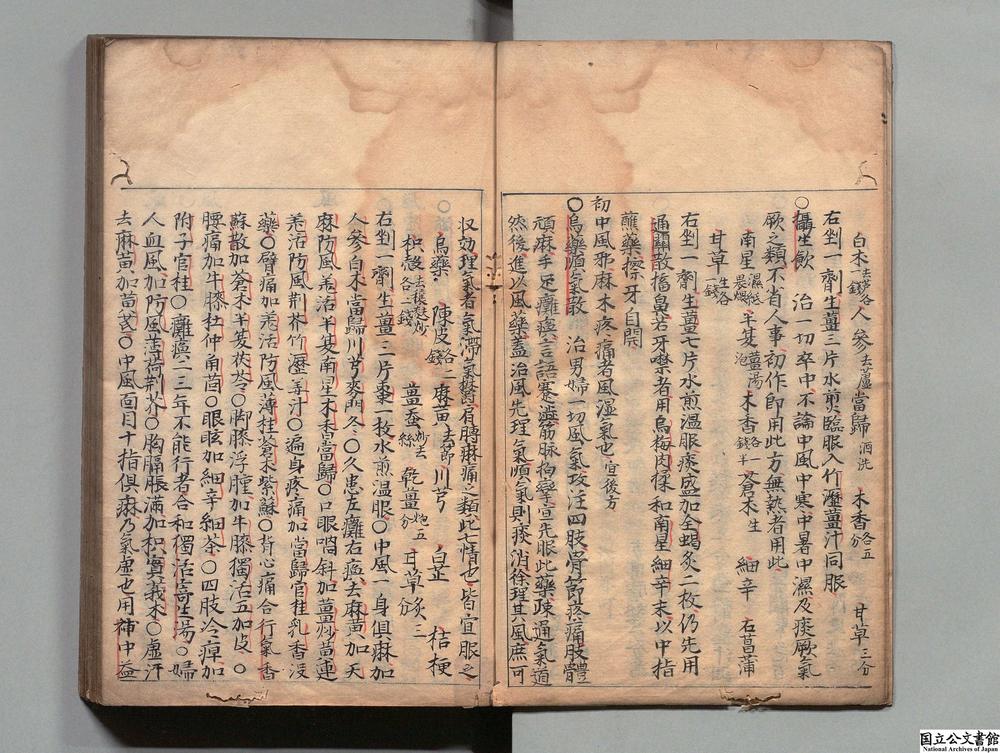 白朮去芦各一錢人參去蘆當歸酒洗木香各五分甘草三分
右剉一劑生薑三片水煎臨服入竹瀝薑汁同服
○攝生飲 治一切卒中不論中風中寒中暑中濕及痰厥氣
厥之類不省人事初作即用此方無熱者用此
南星濕紙裹煨半夏薑湯泡木香各錢半蒼朮生細辛石菖蒲
甘草生各一錢
右剉一劑生薑七片水煎溫服痰盛加全蝎炙二枚仍先用
通關散搐鼻若牙噤者用烏梅肉揉和南星細辛末以中指
蘸藥擦牙自開
初中風邪麻木疼痛者風濕氣也宜後方
○烏藥順氣散 治男婦一切風氣攻注四肢骨節疼痛肢體
頑麻手足癱瘓言語蹇澁筋脉拘攣宜先服此藥疎通氣道
然後進以風藥蓋治風先理氣順氣則痰消徐理其風庶可
収効理氣者氣滯氣鬱肩膊麻痛之類此七情也皆宜服之
○烏藥 陳皮各二錢麻黃去節川芎 白芷 桔梗
枳殼去穰麩炒各一錢 薑蚕炒去絲 乾薑炮五分甘草炙三分
右剉一劑生薑三片棗一枚水煎溫服○中風一身俱麻加
人參白朮當歸川芎麥門冬○久患左癱右瘓去麻黃加天
麻防風羌活半夏南星木香當歸○口眼喎斜加薑炒黃連
羌活防風荊芥竹瀝姜汁○遍身疼痛加當歸官桂乳香没
藥○臂痛加羌活防風薄桂蒼朮紫蘇○背心痛合行氣香
蘇散加蒼朮半夏茯苓○脚膝浮腫加牛膝獨活五加皮○
腰痛加牛膝杜仲角茴○眼眩加細辛細茶○四肢冷痺加
附子官桂○癱瘓二三年不能行者合和獨活寄生湯○婦
人血風加防風薄荷荊芥○胸膈脹滿加枳實莪朮○虛汗
去麻黃加黃芪○中風面目十指俱麻乃氣虛也用補中益
国立公文書館
National Archives of Japan